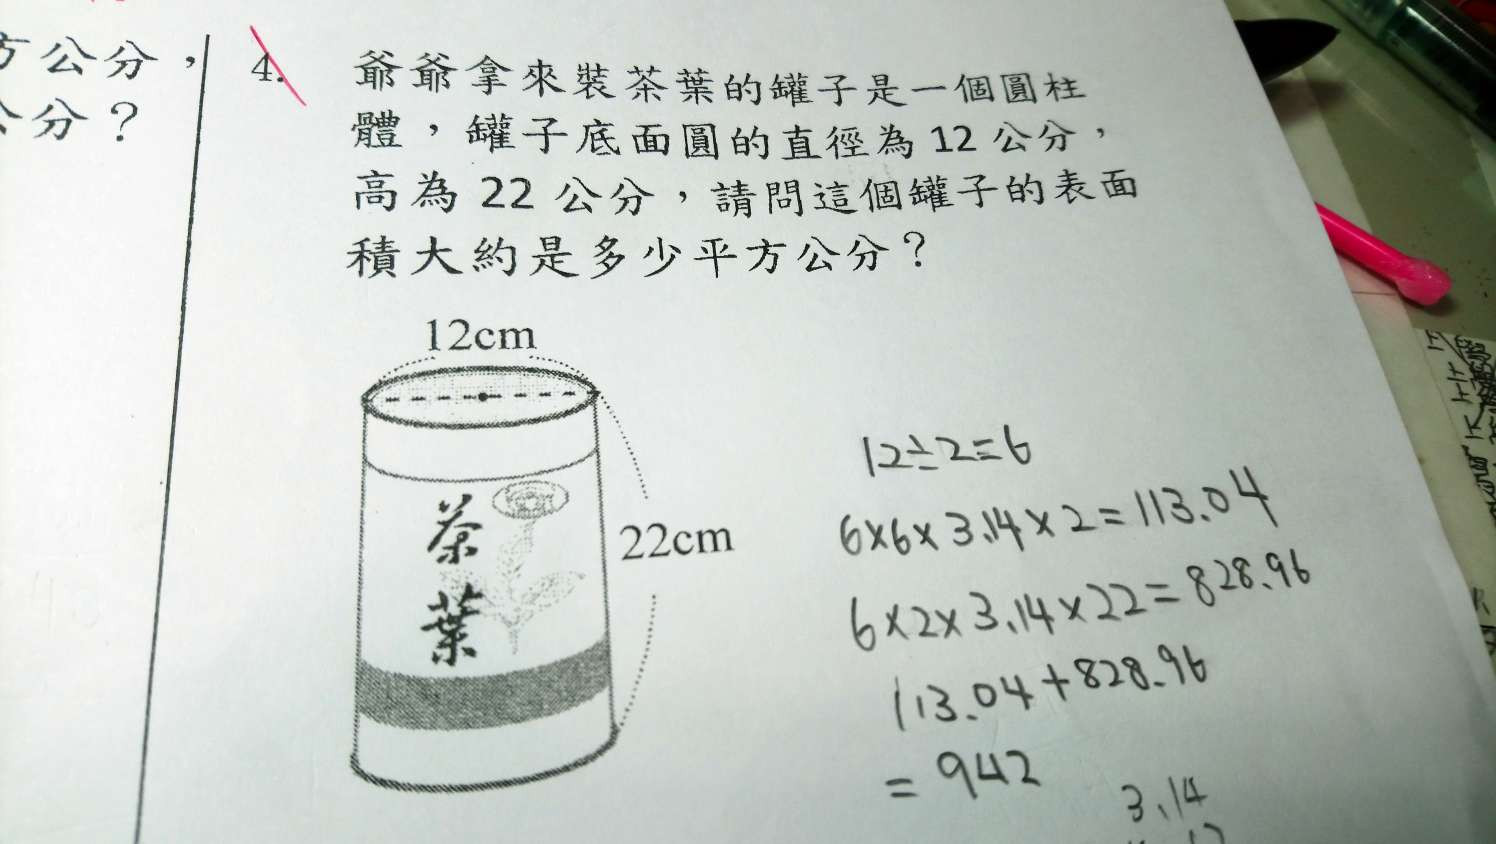 方公分，
公分？
4. 爺爺拿來裝茶葉的罐子是一個圓柱
體，罐子底面圓的直徑為 12 公分，
高為 22 公分，請問這個罐子的表面
積大約是多少平方公分？
12cm
22cm
茶
葉
12÷2=6
6×6×3.14×2=113.04
6×2×3.14×22=828.96
113.04+828.96
=942
3.14